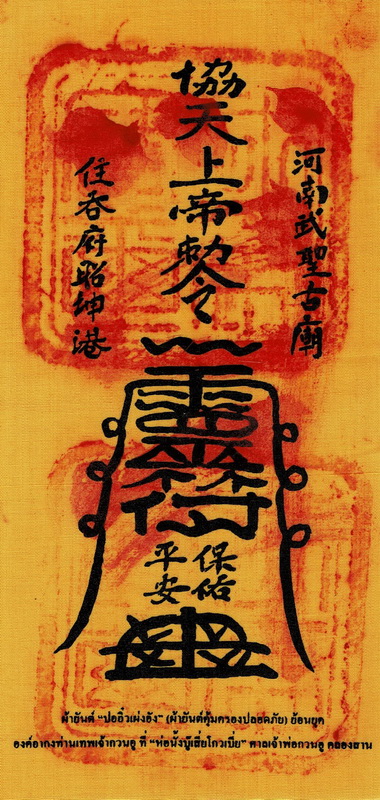 河南武聖古廟
協天上帝勅令
住吞府昭坤港
保佑
平安
ผ้ายันต์ "ปออิ๋วเผ่งอัง" (ผ้ายันต์คุ้มครองปลอดภัย) ย้อนยุค
องค์อากงท่านเทพเจ้ากวนอู ที่ "ห่อนั้งบู๊เสี่ยโกวเบี่ย" ศาลเจ้าพ่อกวนอู คลองสาน